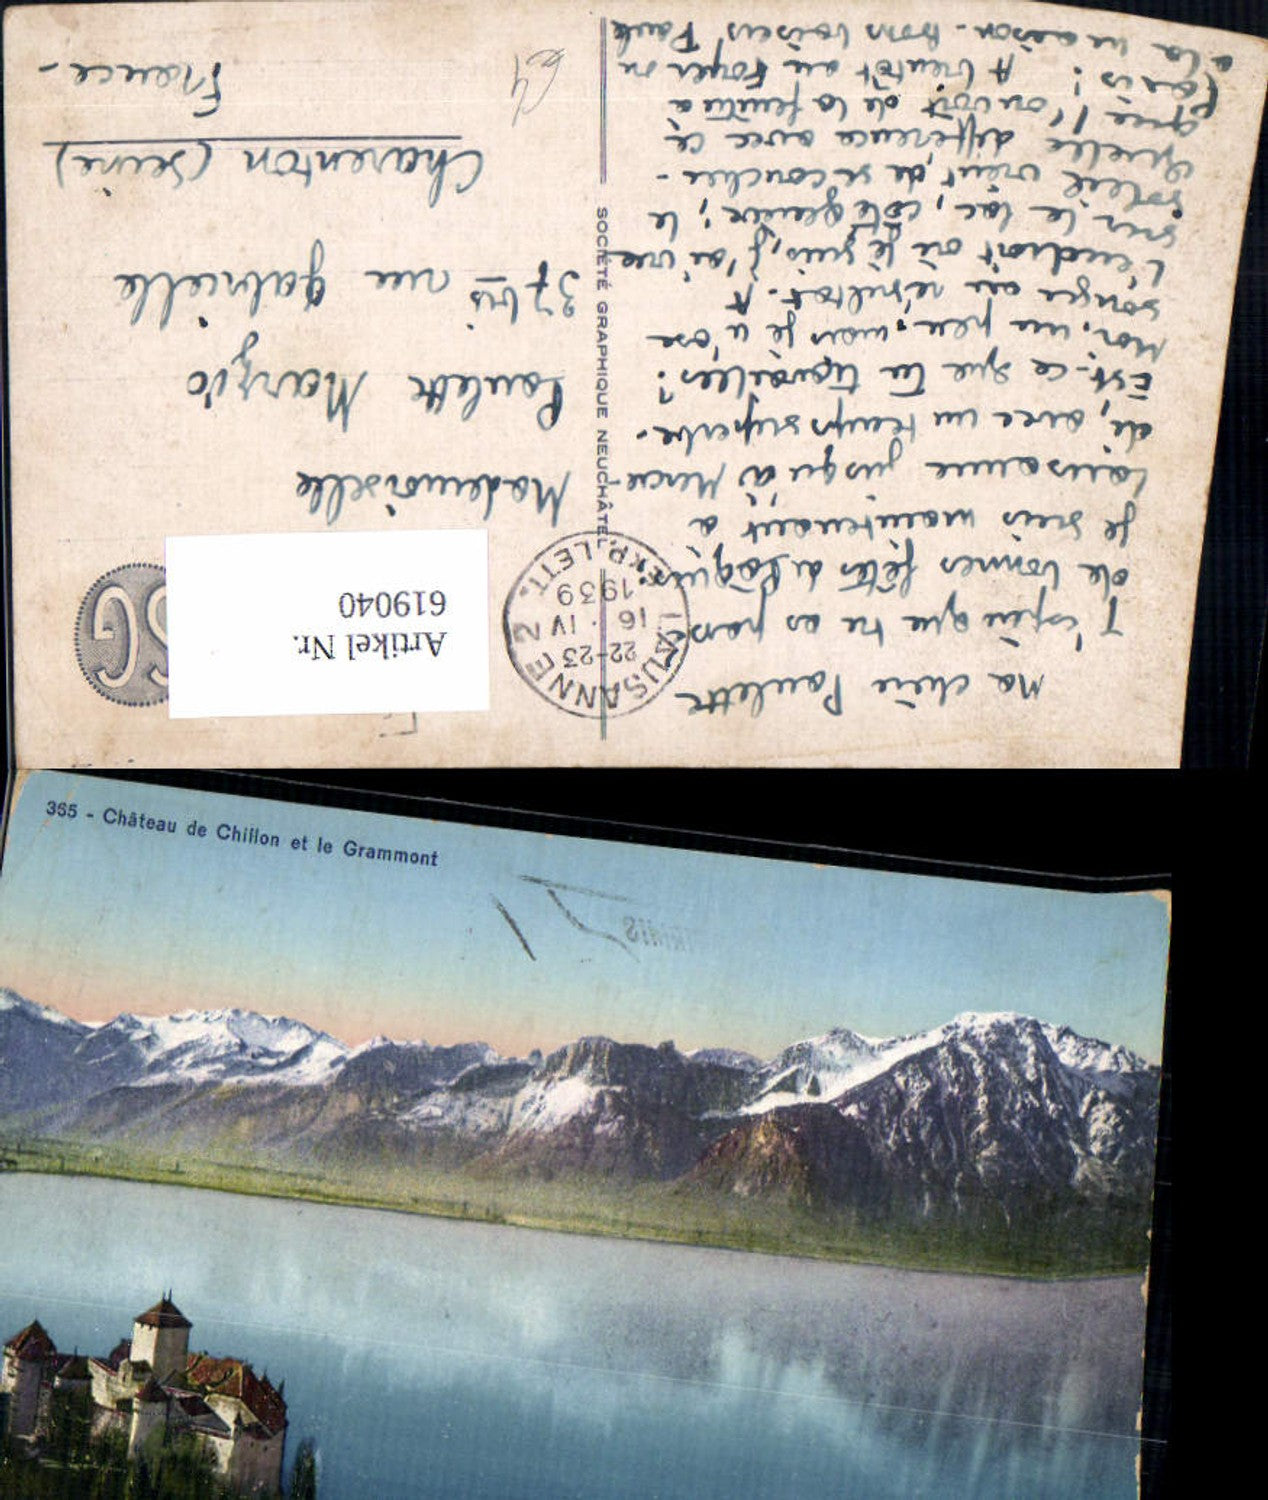 Ma chère Paulette
J'espère que tu as passé
de bonnes fêtes de Pâques.
Je suis maintenant à
Lausanne jusqu'à Mercre-
di, avec un temps superbe.
Est-ce que tu travailles?
Moi, un peu, mais je n'ose
songer au résultat. A
l'endroit où je suis, j'ai vue
sur le lac, côté ; le
soleil vient de se coucher.
Quelle différence avec ce
que l'on voit de la fenêtre à
Paris! A bientôt au Foyer ou
à la maison - bons baisers Paule
SOCIÉTÉ GRAPHIQUE NEUCHÂTEL
LAUSANNE 2
22-23
16. IV
1939
EXP. LETT.
Mademoiselle
Paulette
37 bis rue Gabrielle
Charenton (Seine)
France-
SG
Artikel Nr.
619040
365 - Château de Chillon et le Grammont